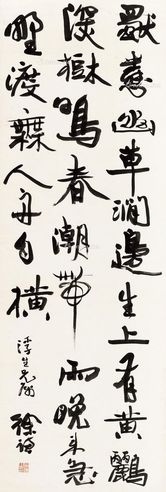 獨憐幽草澗邊生上有黃鸝
深樹鳴春潮帶雨晚來急
野渡無人舟自橫
徐